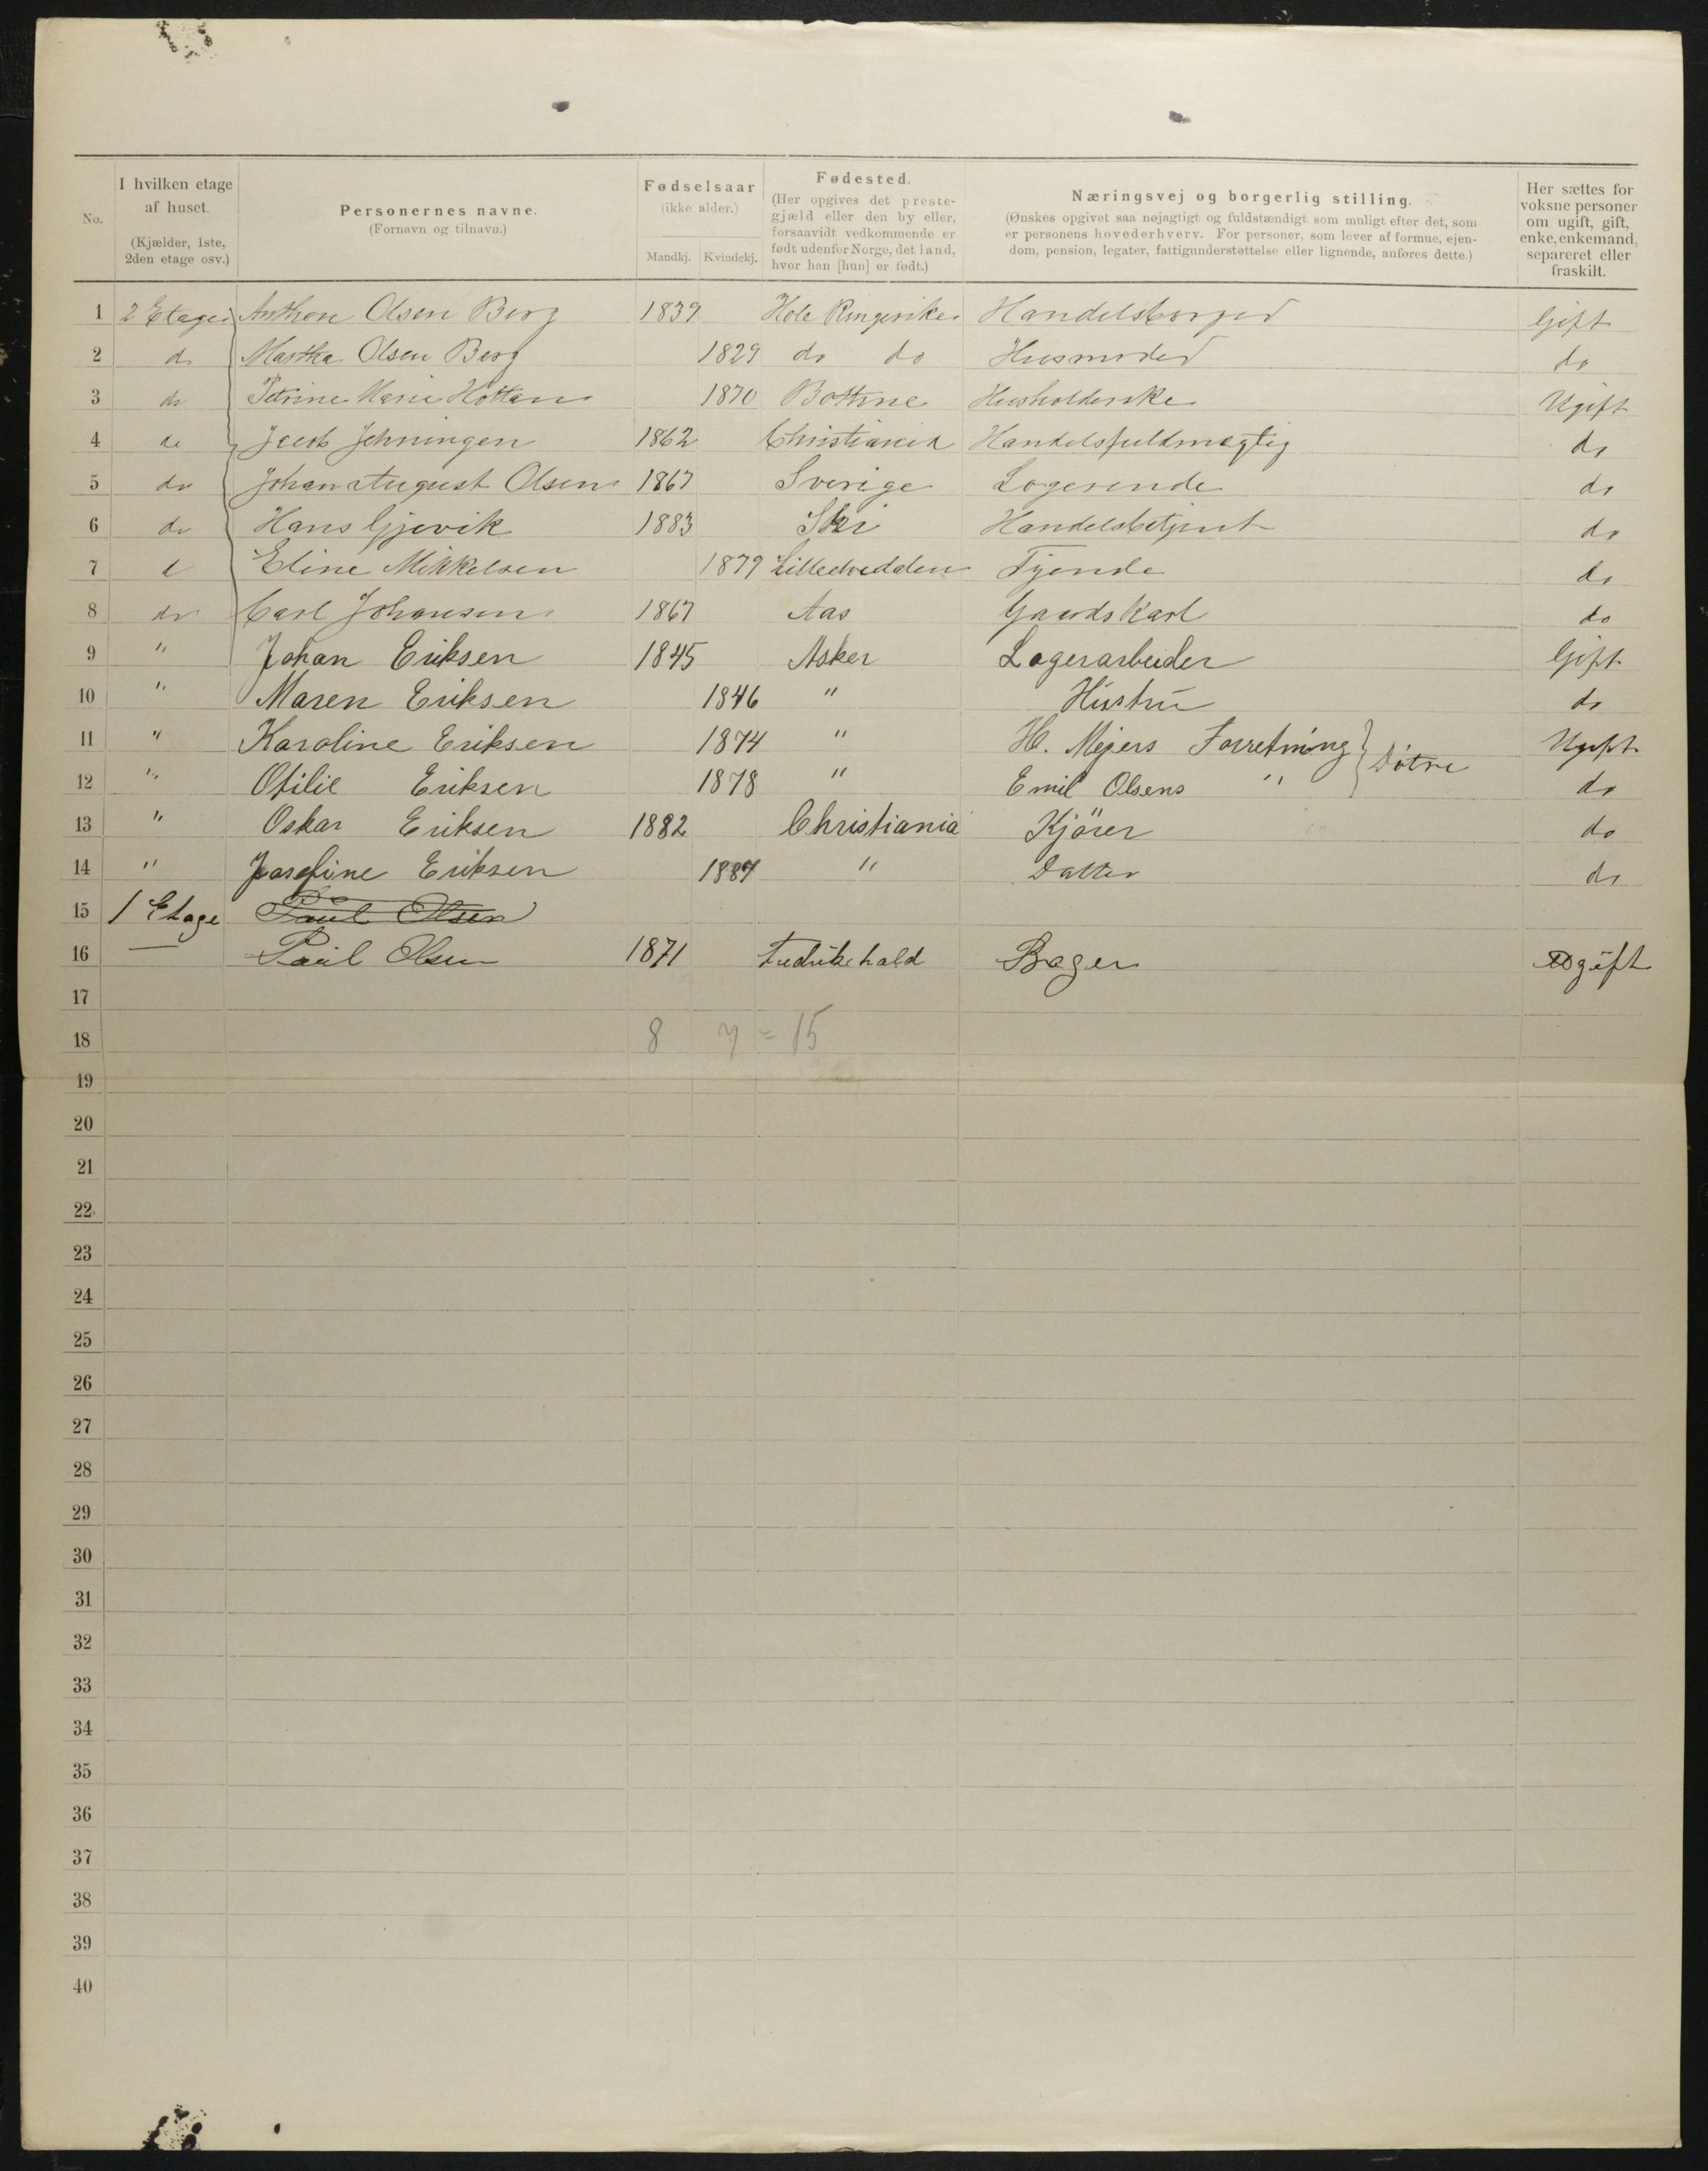 No. I hvilken etage af huset. (Kjælder, 1ste, 2den etage osv.) Personernes navne. (Fornavn og tilnavn.) Fødselsaar (ikke alder.) Mandkj. Kvindekj. Fødested. (Her opgives det prestegjæld eller den by eller, forsaavidt vedkommende er født udenfor Norge, det land, hvor han [hun] er født.) Næringsvej og borgerlig stilling. (Ønskes opgivet saa nøjagtigt og fuldstændigt som muligt efter det, som er personens hovederhverv. For personer, som lever af formue, ejendom, pension, legater, fattigunderstøttelse eller lignende, anføres dette.) Her sættes for voksne personer om ugift, gift, enke, enkemand, separeret eller fraskilt.
1 2 Etage Anthon Olsen Berg 1839 Hole Ringerike Handelsborger Gift
2 do Martha Olsen Berg 1829 do do Husmoder do
3 do Petrine Marie 1870 Botne Husholderske Ugift
4 do Jacob 1862 Christiania Handelsfuldmægtig do
5 do Johan August Olsen 1867 Sverige Logerende do
6 do Hans Gjevik 1883 Ski Handelsbetjent do
7 d Eline Mikkelsen 1879 Tjende do
8 do Carl Johansen 1867 Aas Gaardskarl do
9 " Johan Eriksen 1845 Asker Lagerarbeider Gift
10 " Maren Eriksen 1846 " Hustru do
11 " Karoline Eriksen 1874 " H. Mejers Forretning } Døtre Ugift
12 " Otilie Eriksen 1878 " Emil Olsens " do
13 " Oskar Eriksen 1882 Christiania Kjører do
14 " Josefine Eriksen 1887 " Datter do
15 1 Etage Paul Olsen
16 — Paul Olsen 1871 Fredrikshald Bager Ugift
17
18 8 7 = 15
19
20
21
22
23
24
25
26
27
28
29
30
31
32
33
34
35
36
37
38
39
40